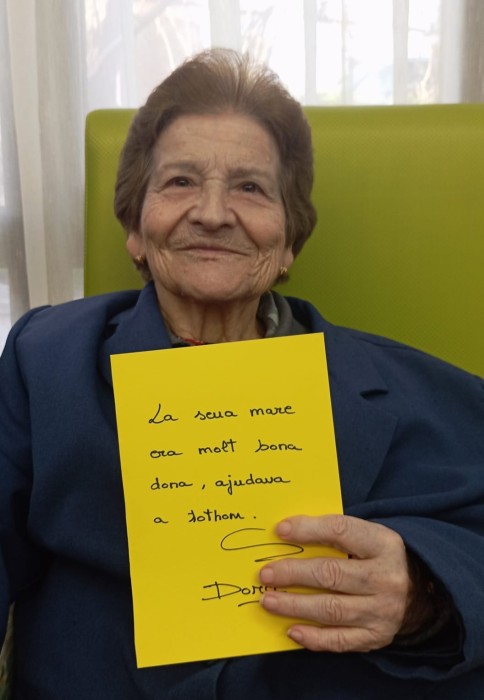 La seua mare
era molt bona
dona, ajudava
a tothom.